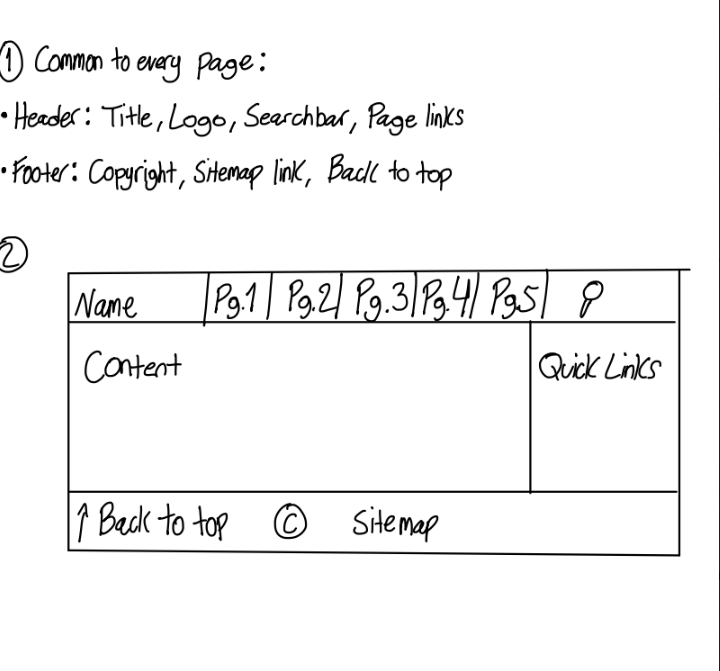 ① Common to every page:
• Header: Title, Logo, Searchbar, Page links
• Footer: Copyright, Sitemap link, Back to top
②
Name Pg.1 Pg.2 Pg.3 Pg.4 Pg5
Content Quick Links
↑ Back to top © Sitemap